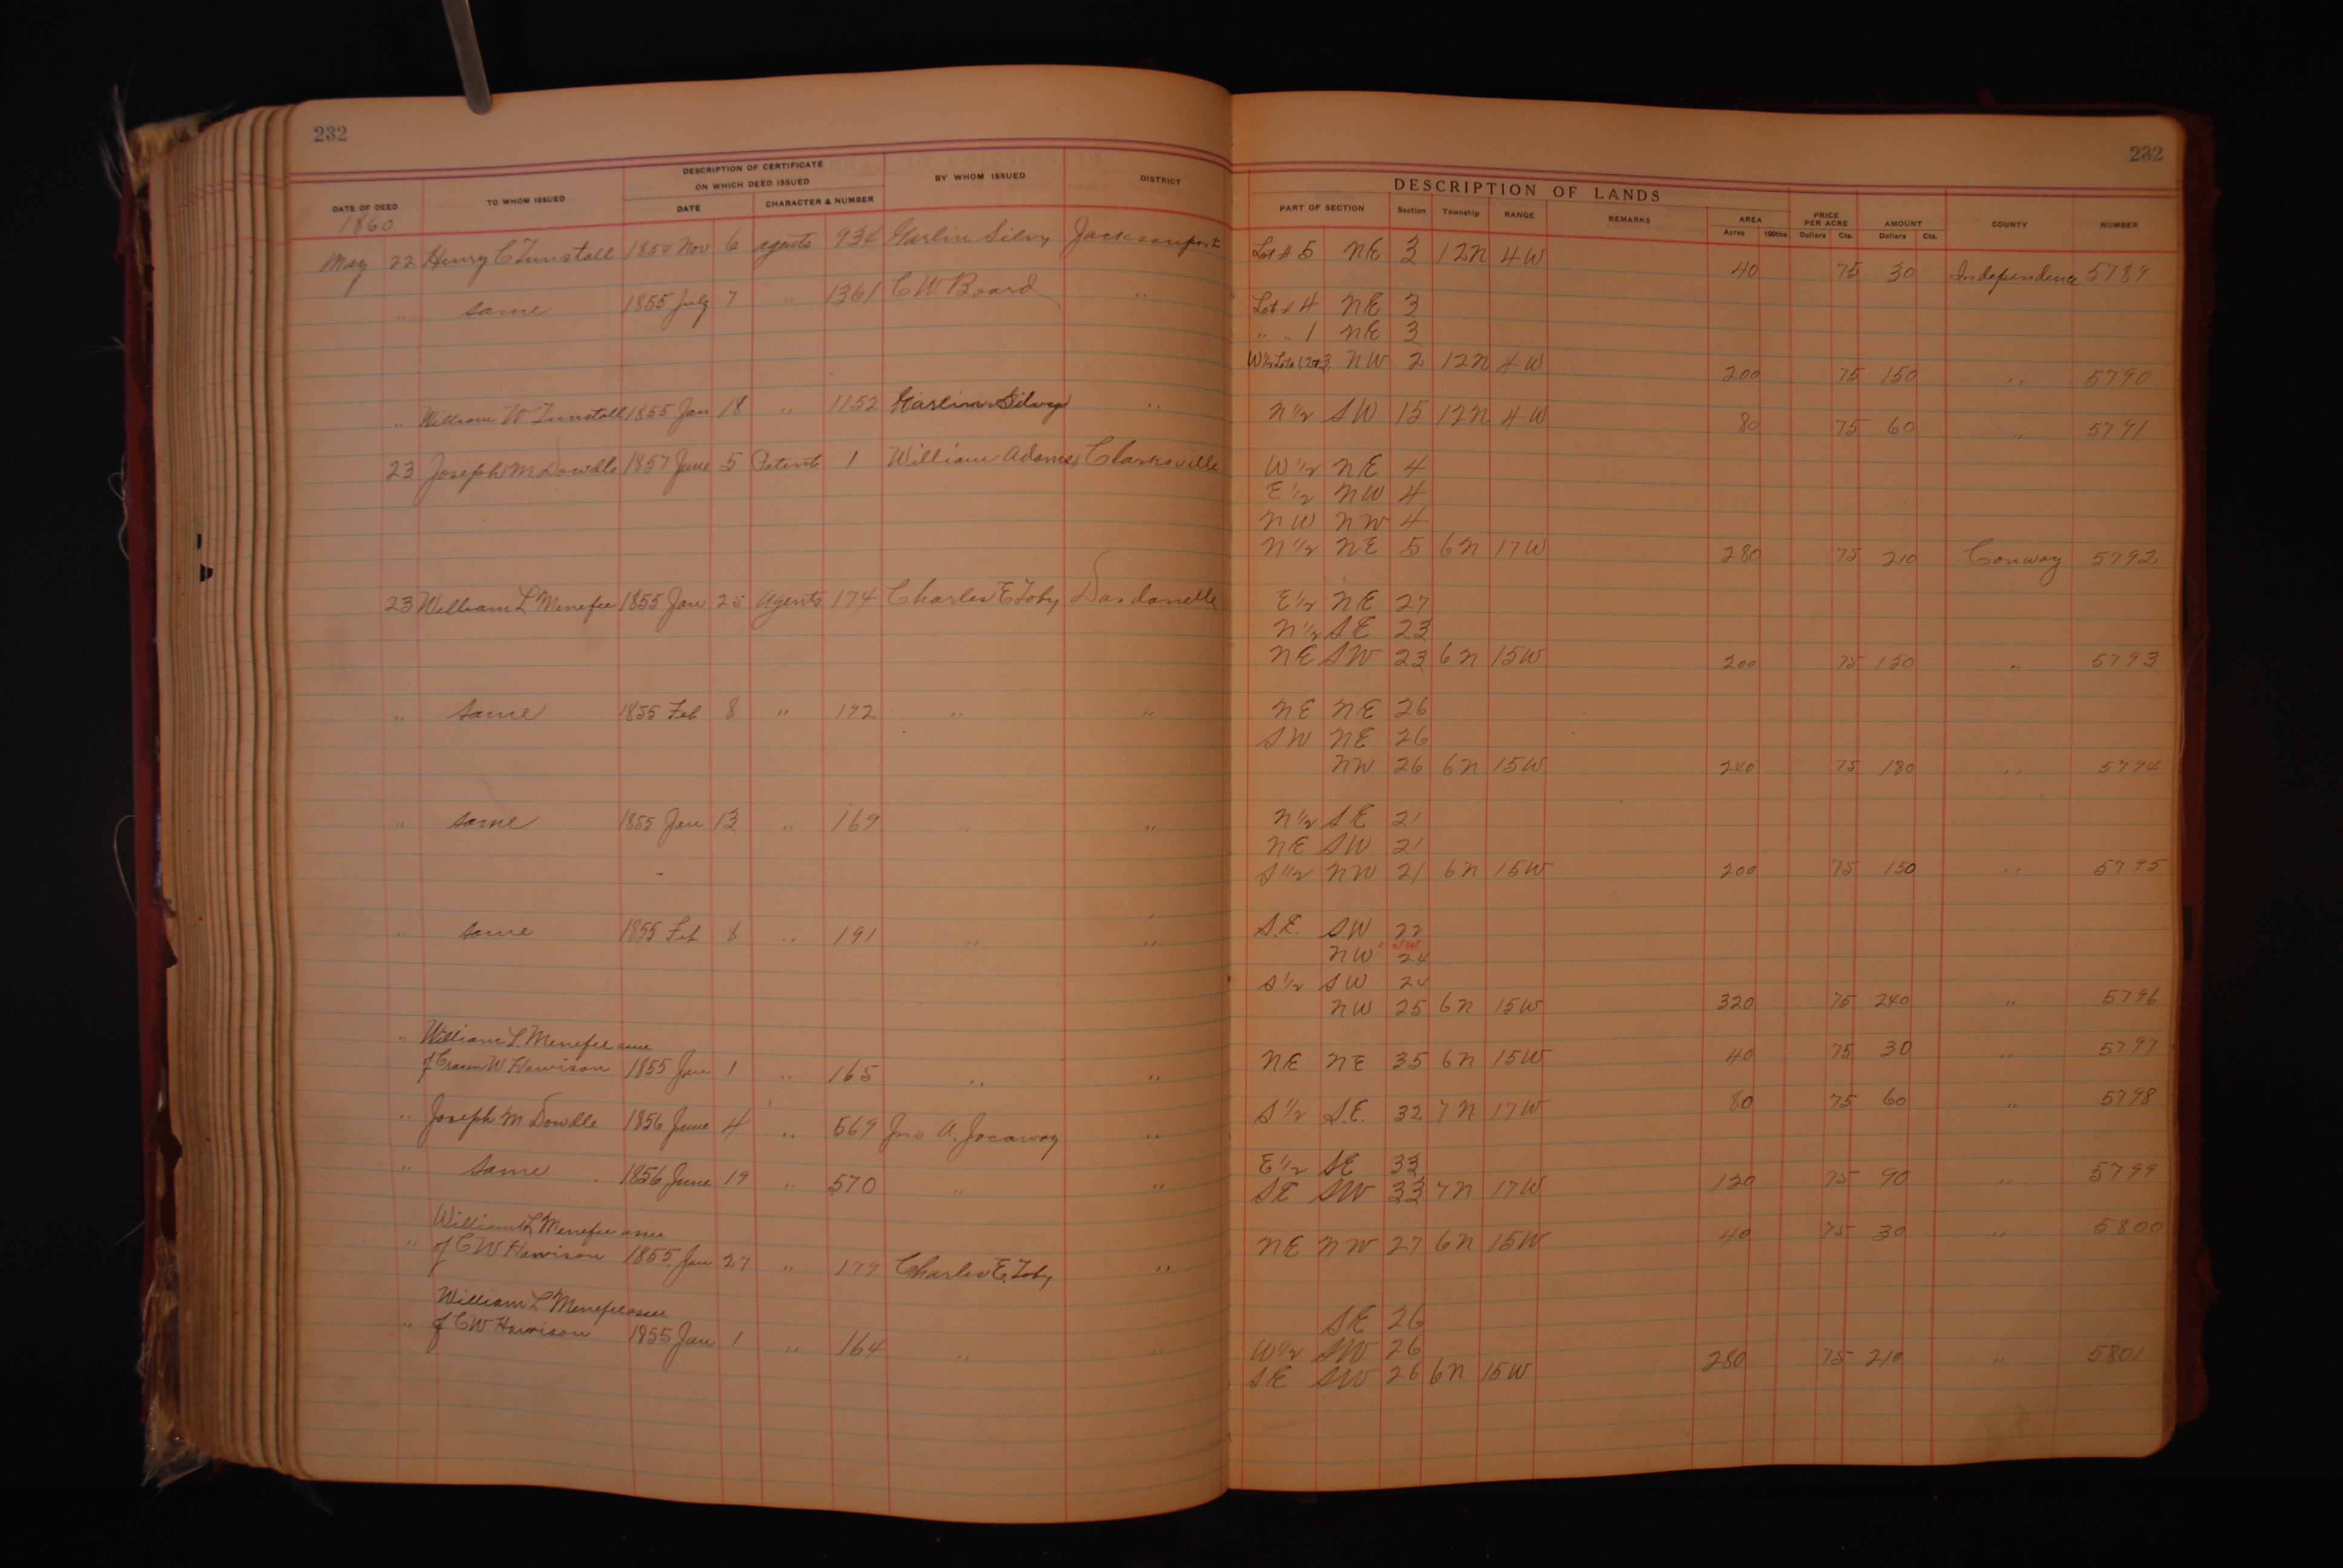 232
232
DESCRIPTION OF CERTIFICATE
ON WHICH DEED ISSUED
DATE OF DEED TO WHOM ISSUED DATE CHARACTER & NUMBER BY WHOM ISSUED DISTRICT
DESCRIPTION OF LANDS
PART OF SECTION Section Township RANGE REMARKS AREA Acres 100ths PRICE PER ACRE Dollars Cts. AMOUNT Dollars Cts. COUNTY NUMBER
1860
May 22 Henry C Tunstall 1854 Nov 6 agents 934 Garlin Silvy Jacksonport Lot # 5 NE 3 12N 4W 40 75 30 Independence 5789
" same 1855 July 7 " 1361 C W Board " Lot # 4 NE 3
" " 1 NE 3
W 1/2 Lots 1, 2 & 3 NW 2 12N 4W 200 75 150 " 5790
" William W Tunstall 1855 Jan 18 " 1152 Garlin Silvy " N 1/2 SW 15 12N 4W 80 75 60 " 5791
23 Joseph M Dowdle 1857 June 5 Patent 1 William Adams Clarksville W 1/2 NE 4
E 1/2 NW 4
NW NW 4
N 1/2 NE 5 6N 17W 280 75 210 Conway 5792
23 William L Menefee 1855 Jan 25 Agents 174 Charles E Toby Dardanelle E 1/2 NE 27
N 1/2 SE 23
NE SW 23 6N 15W 200 75 150 " 5793
" same 1855 Feb 8 " 192 " " NE NE 26
SW NE 26
NW 26 6N 15W 240 75 180 " 5794
" same 1855 Jan 13 " 169 " " N 1/2 SE 21
NE SW 21
S 1/2 NW 21 6N 15W 200 75 150 " 5795
" same 1855 Feb 8 " 191 " " S.E. SW 22
NW 24
S 1/2 SW 24
NW 25 6N 15W 320 75 240 " 5796
" William L. Menefee assee
of W Harrison 1855 Jan 1 " 165 " " NE NE 35 6N 15W 40 75 30 " 5797
" Joseph M Dowdle 1856 June 4 " 569 Jno A. Jacaway " S 1/2 S.E. 32 7N 17W 80 75 60 " 5798
" Same 1856 June 19 " 570 " " E 1/2 SE 33
SE SW 33 7N 17W 120 75 90 " 5799
William L Menefee assee
" of C W Harrison 1855 Jan 27 " 179 Charles E. Toby " NE NW 27 6N 15W 40 75 30 " 5800
William L Menefee assee
" of C W Harrison 1855 Jan 1 " 164 " " SE 26
W 1/2 SW 26
SE SW 26 6N 15W 280 75 210 " 5801